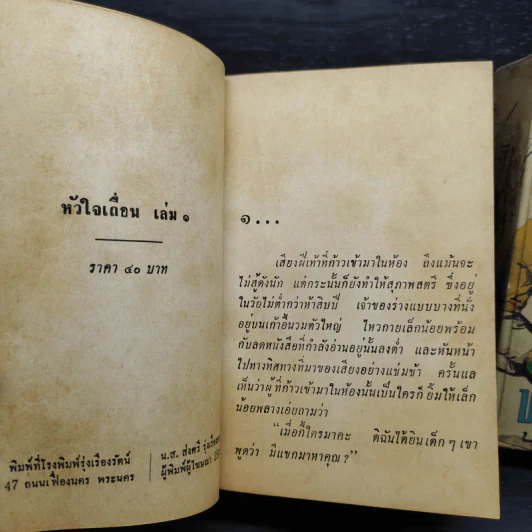 หัวใจเถื่อน เล่ม ๑
ราคา ๔๐ บาท
พิมพ์ที่โรงพิมพ์รุ่งเรืองรัตน์
47 ถนนเฟื่องนคร พระนคร
น.ส. ส่งศรี
ผู้พิมพ์ผู้โฆษณา
๑...
เสียงฝีเท้าที่ก้าวเข้ามาในห้อง ถึงแม้นจะ
ไม่สู้ดังนัก แต่กระนั้นก็ยังทำให้สุภาพสตรี ซึ่งอยู่
ในวัยไม่ต่ำกว่าห้าสิบปี เจ้าของร่างแบบบางที่นั่ง
อยู่บนเก้าอี้นวมตัวใหญ่ ไหวกายเล็กน้อยพร้อม
กับลดหนังสือที่กำลังอ่านอยู่นั้นลงต่ำ และหันหน้า
ไปทางทิศทางที่มาของเสียงอย่างแช่มช้า ครั้นแล
เห็นว่าผู้ที่ก้าวเข้ามาในห้องนั้นเป็นใครก็ ยิ้มให้เล็ก
น้อยพลางเอ่ยถามว่า
"เมื่อกี้ใครมาคะ ดิฉันได้ยินเด็ก ๆ เขา
พูดว่า มีแขกมาหาคุณ?"